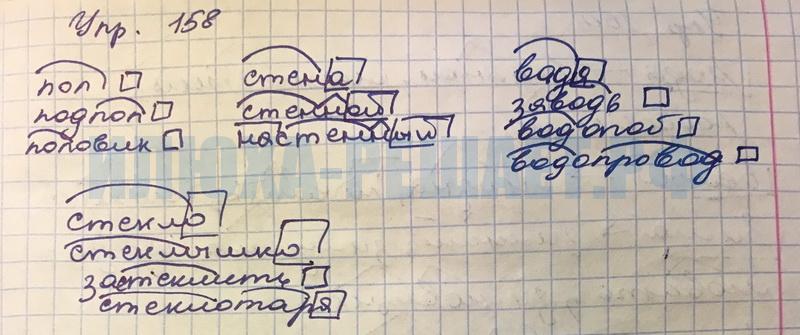 Упр. 158
пол
подпол
половик
стена
стенной
настенный
вода
заводь
водопой
водопровод
ИЛЮХА-РЕШАЕТ.РФ
стекло
стеклышко
застеклить
стеклотара